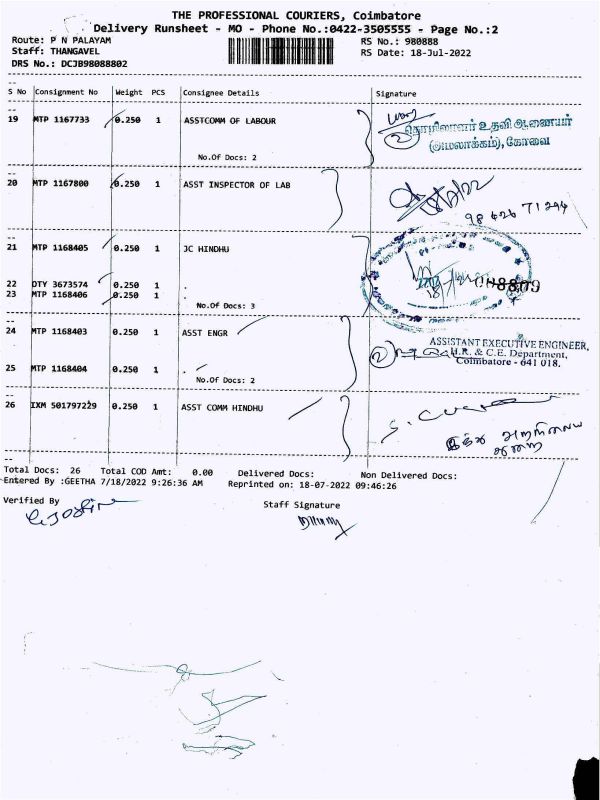 THE PROFESSIONAL COURIERS, Coimbatore
Delivery Runsheet - MO - Phone No.:0422-3505555 - Page No.:2
Route: P N PALAYAM RS No.: 980888
Staff: THANGAVEL RS Date: 18-Jul-2022
DRS No.: DCJB98088802
S No Consignment No Weight PCS Consignee Details Signature
19 MTP 1167733 0.250 1 ASSTCOMM OF LABOUR
தொழிலாளர் உதவி ஆணையர்
(அமலாக்கம்), கோவை
No.Of Docs: 2
20 MTP 1167800 0.250 1 ASST INSPECTOR OF LAB
98 426 71244
21 MTP 1168405 0.250 1 JC HINDHU
22 DTY 3673574 0.250 1 .
23 MTP 1168406 0.250 1 .
No.Of Docs: 3
24 MTP 1168403 0.250 1 ASST ENGR
ASSISTANT EXECUTIVE ENGINEER,
H.R. & C.E. Department,
Coimbatore - 641 018.
25 MTP 1168404 0.250 1 .
No.Of Docs: 2
26 IXM 501797229 0.250 1 ASST COMM HINDHU
இந்து அறநிலைய
துறை
Total Docs: 26 Total COD Amt: 0.00 Delivered Docs: Non Delivered Docs:
Entered By :GEETHA 7/18/2022 9:26:36 AM Reprinted on: 18-07-2022 09:46:26
Verified By Staff Signature